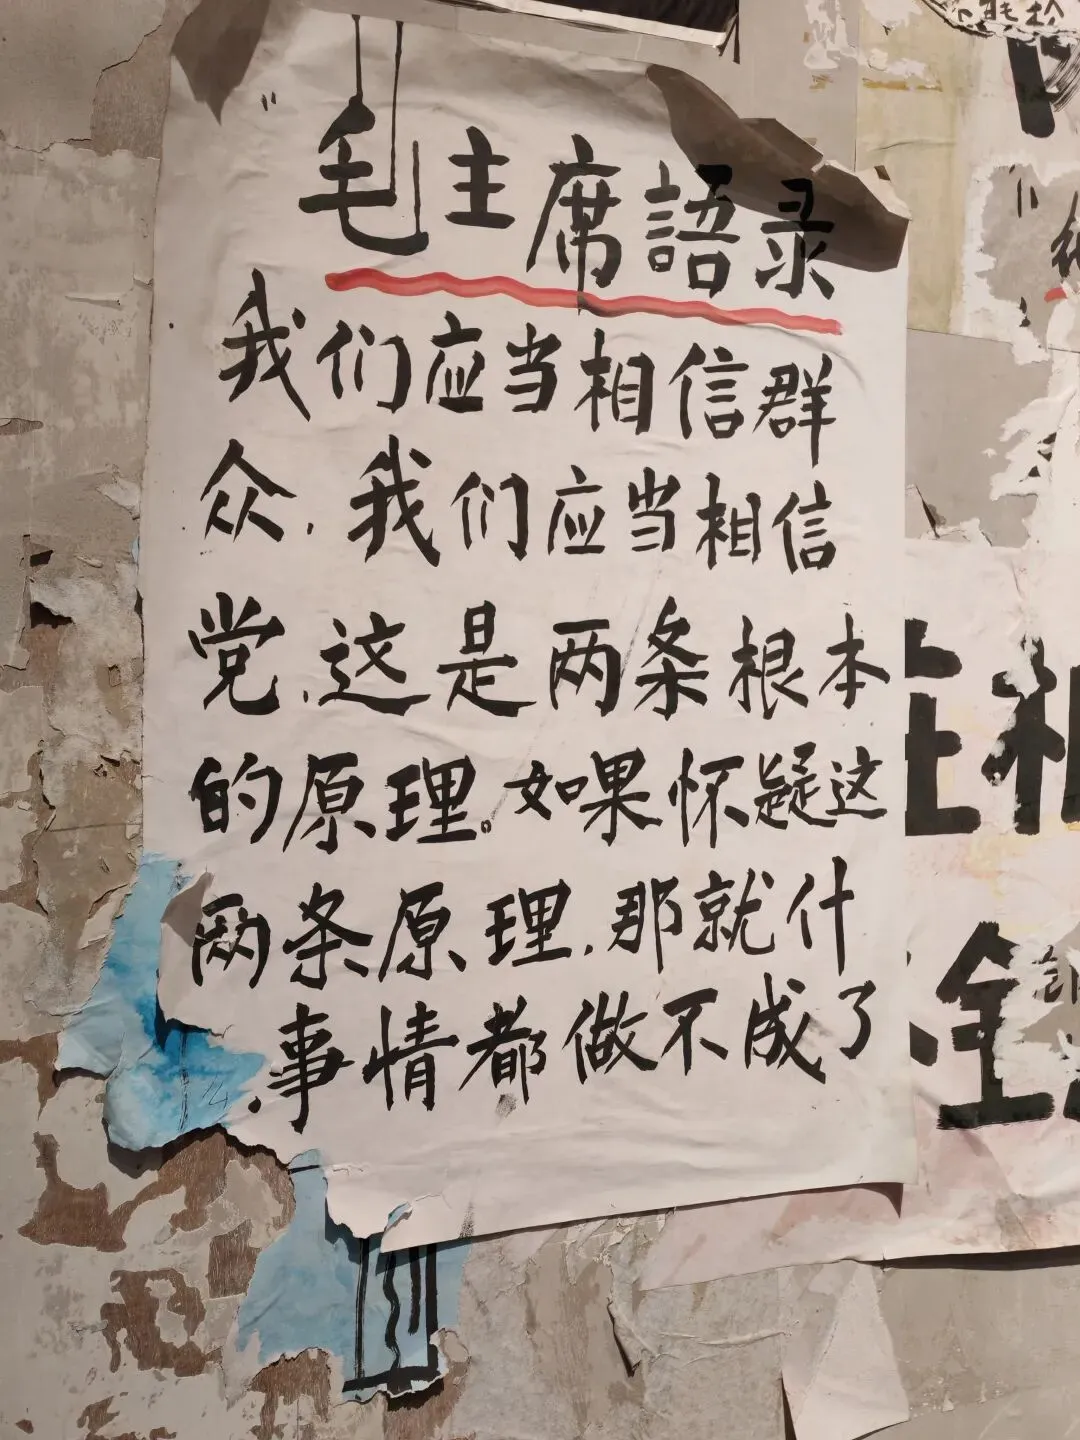 毛主席語录
我们应当相信群
众,我们应当相信
党,这是两条根本
的原理。如果怀疑这
两条原理,那就什
事情都做不成了